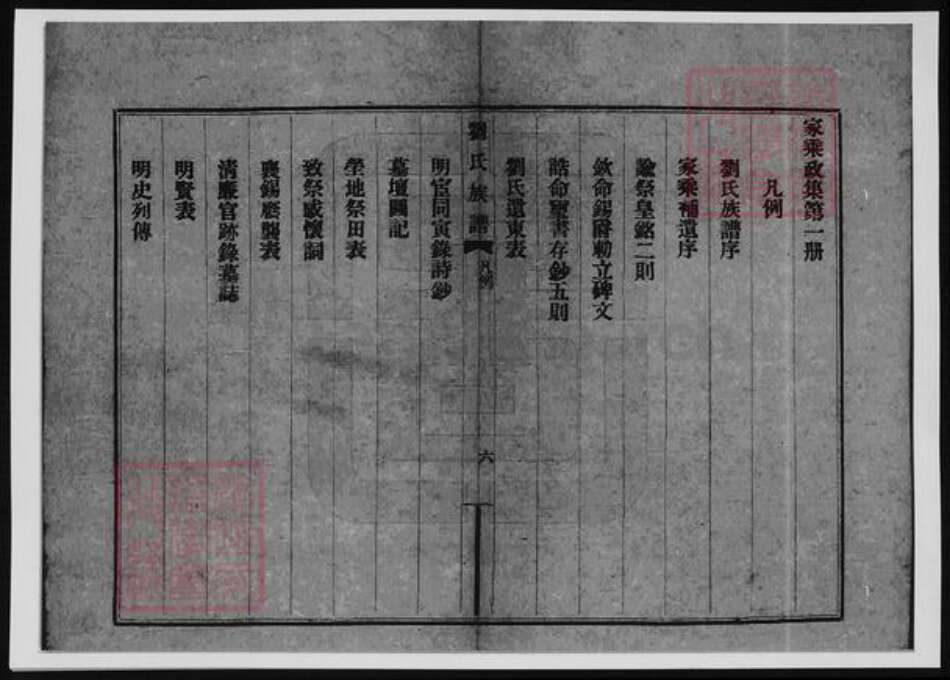 家乘政集第一册
凡例
劉氏族譜序
家乘補遺序
諭祭皇銘二則
欽命錫爵勅立碑文
誥命璽書存鈔五則
劉氏遺東表
劉氏族譜 凡例 六
明宦同寅錄詩鈔
墓壇圖記
塋地祭田表
致祭感懷詞
襃錫廕襲表
清廉官跡錄墓誌
明賢表
明史列傳